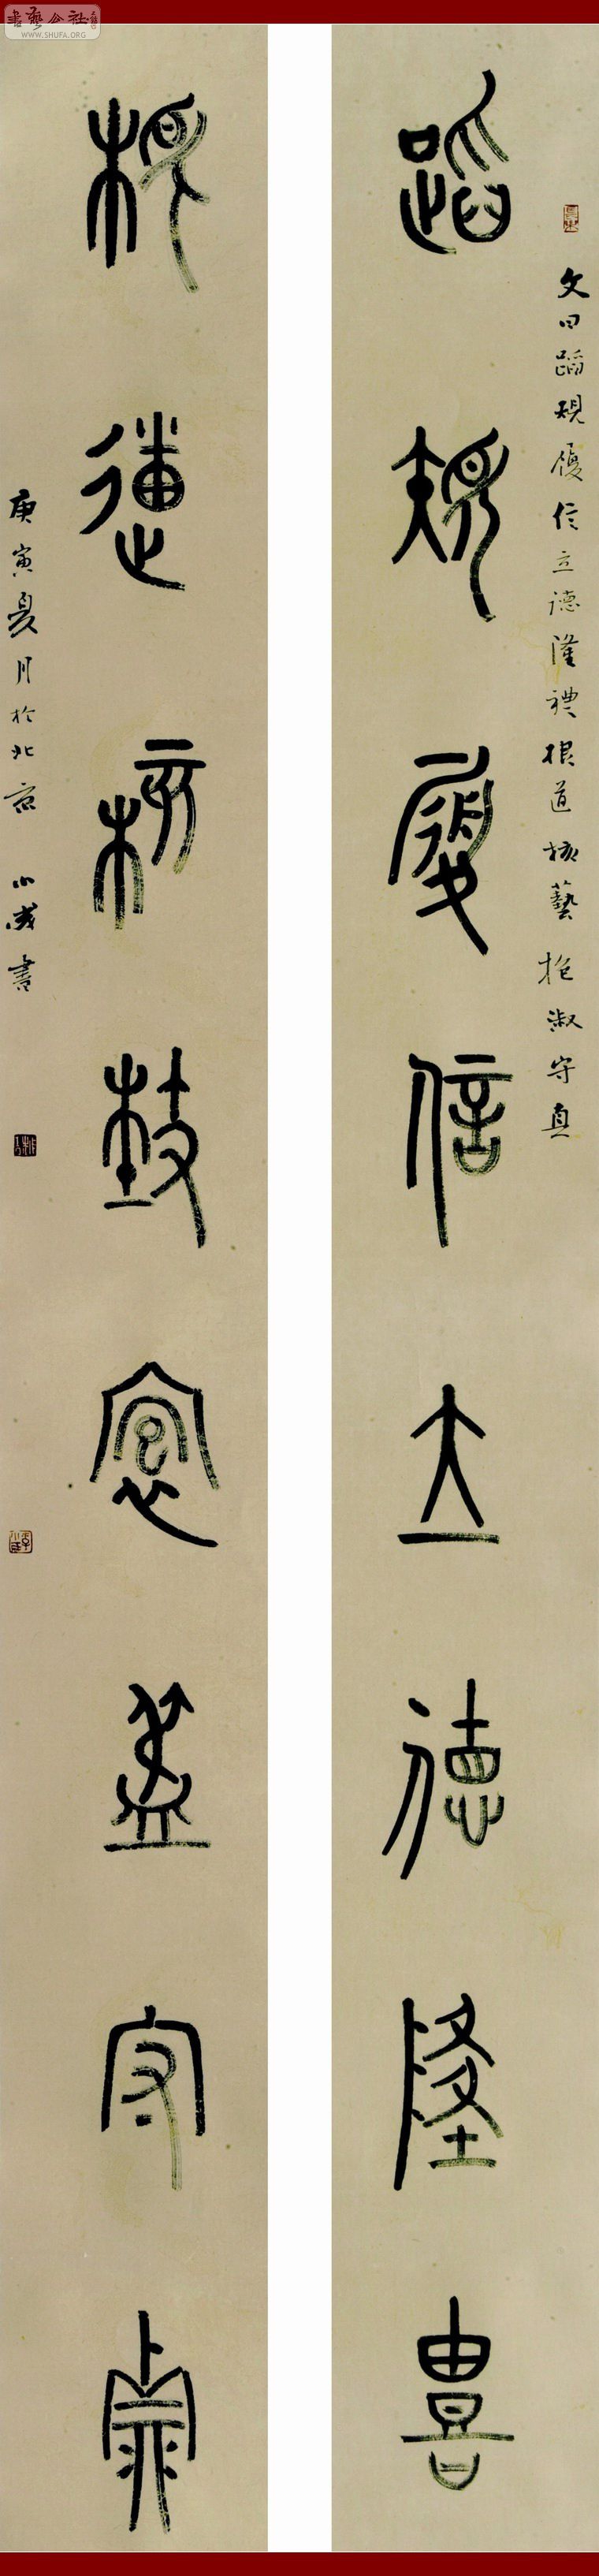 蹈規履信立德隆禮
根道核藝抱淑守真
文曰蹈規履信立德隆禮根道核藝抱淑守真
庚寅夏月於北京 小成書
書藝公社
WWW.SHUFA.ORG